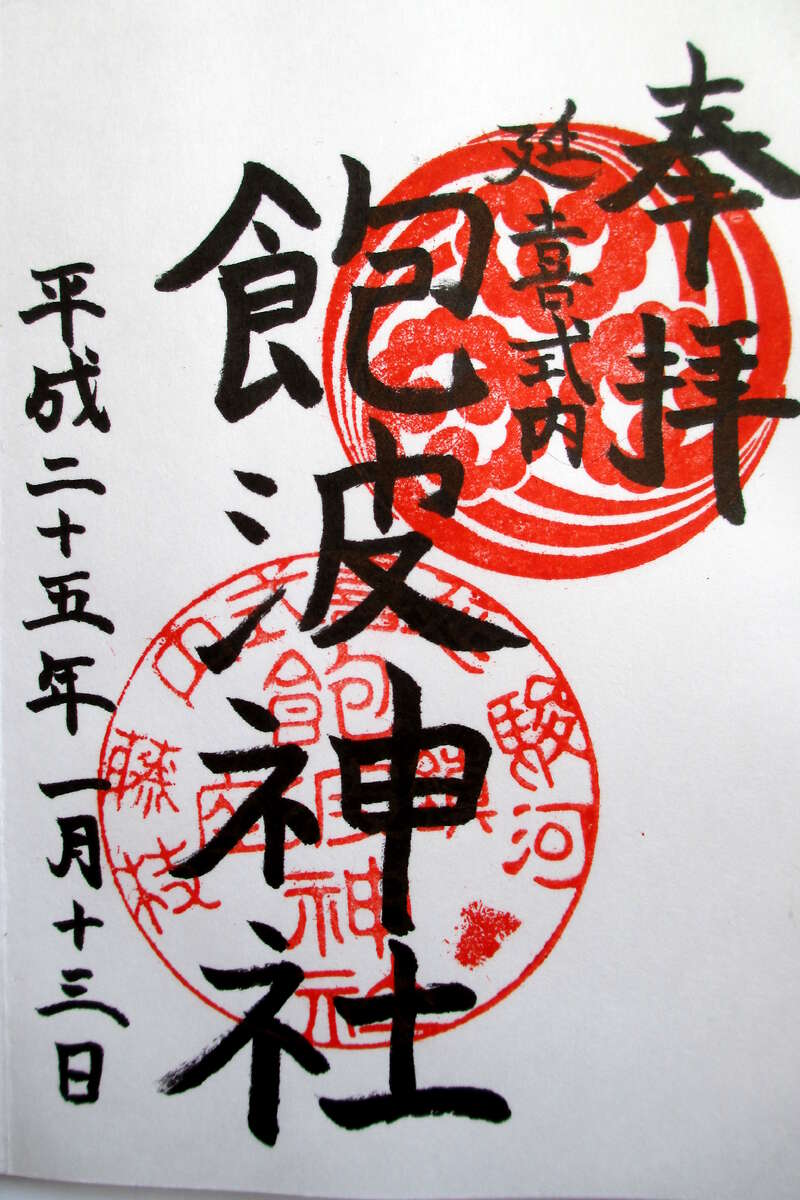 奉拝
延喜式内
飽波神社
平成二十五年一月十三日
駿河
藤枝
飽波神社
鎮座